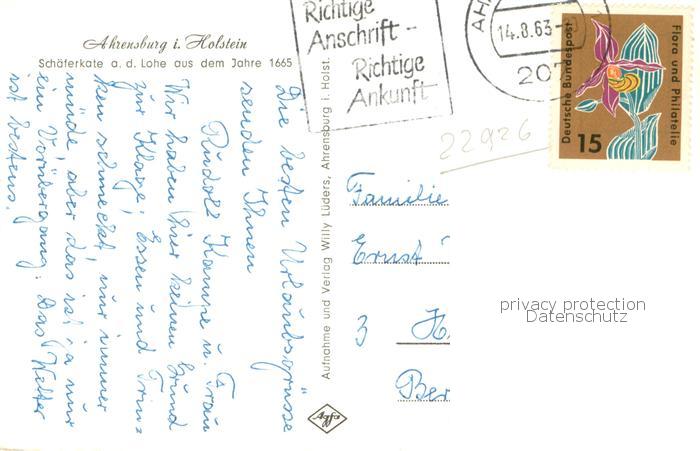 Ahrensburg i. Holstein
Schäferkate a. d. Lohe aus dem Jahre 1665
Die besten Urlaubsgrüsse
senden Ihnen
Rudolf Kampe u. Frau
Wir haben hier keinen Grund
zur Klage; Essen und Trin=
ken schmeckt, nur immer
müde, aber das ist ja nur
ein Vorübergang. Das Wetter
ist bestens.
Aufnahme und Verlag Willy Lüders, Ahrensburg i. Holst.
Agfa
Richtige
Anschrift -
Richtige
Ankunft
AH
14.8.63
207
Deutsche Bundespost
Flora und Philatelie
15
22926
Familie
Ernst
3 H
Ber
privacy protection
Datenschutz